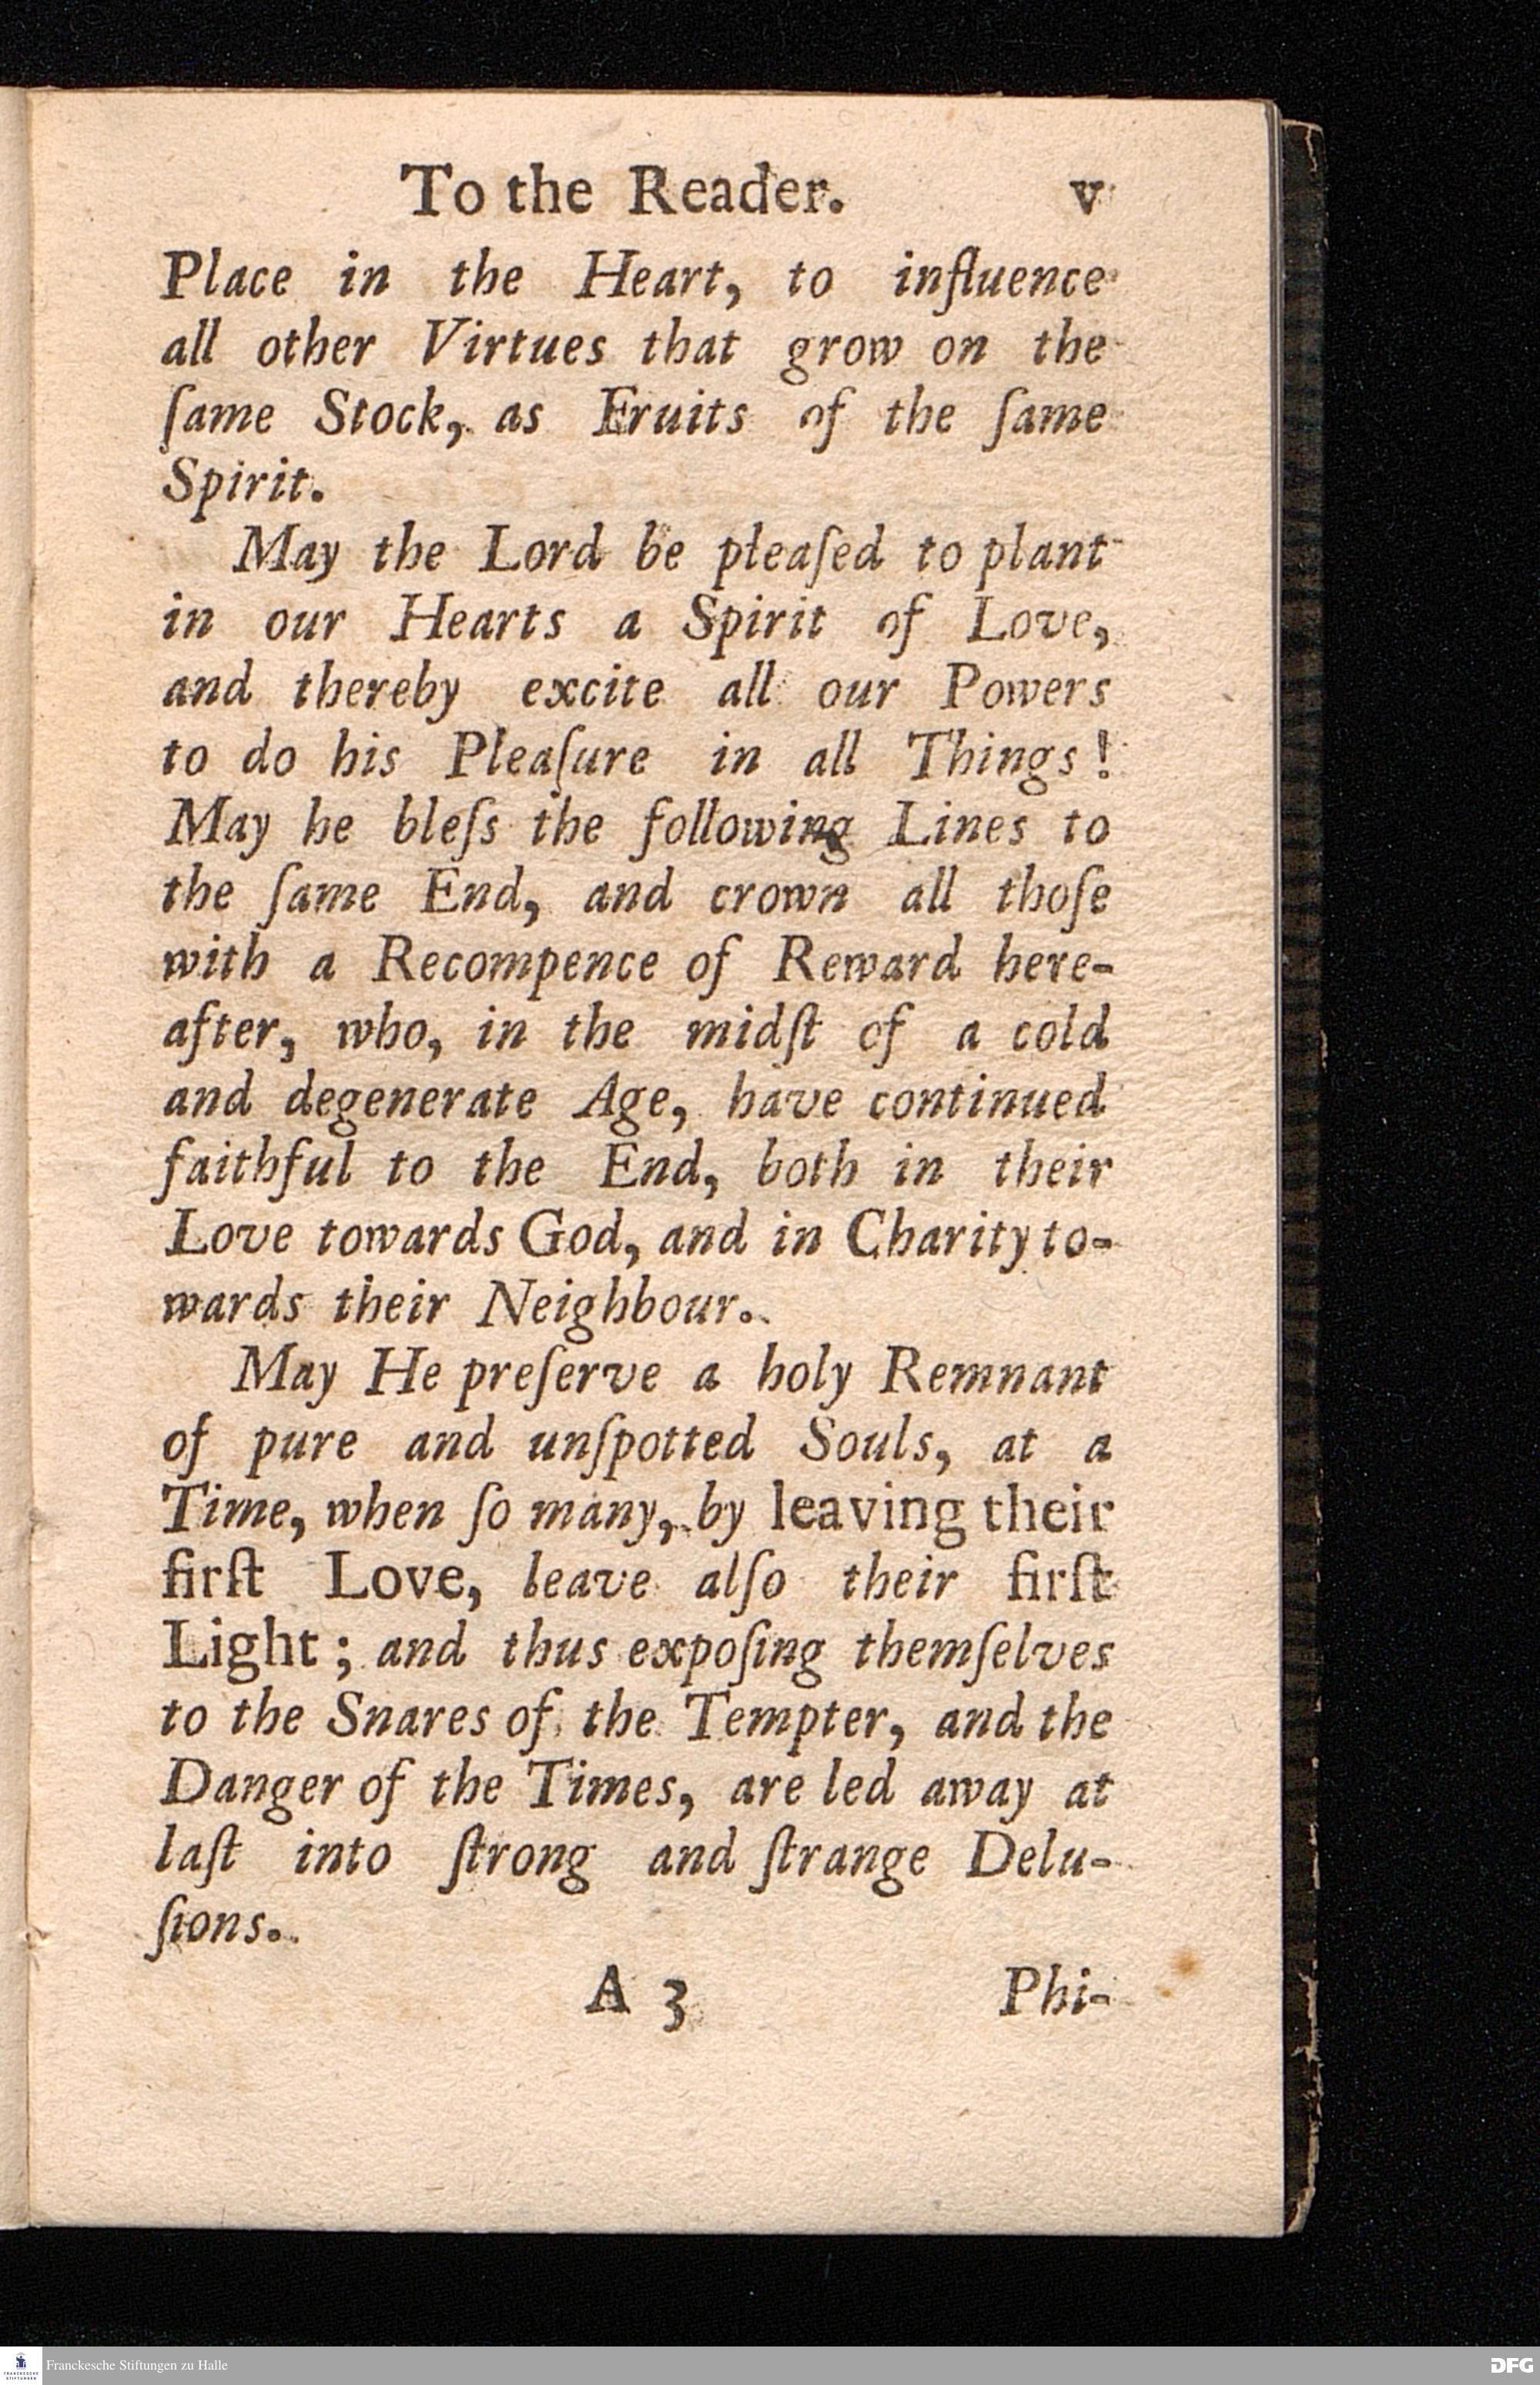 To the Reader. v
Place in the Heart, to influence
all other Virtues that grow on the
ſame Stock, as Fruits of the ſame
Spirit.
May the Lord be pleaſed to plant
in our Hearts a Spirit of Love,
and thereby excite all our Powers
to do his Pleaſure in all Things!
May he bleſs the following Lines to
the ſame End, and crown all thoſe
with a Recompence of Reward here-
after, who, in the midſt of a cold
and degenerate Age, have continued
faithful to the End, both in their
Love towards God, and in Charity to-
wards their Neighbour.
May He preſerve a holy Remnant
of pure and unſpotted Souls, at a
Time, when ſo many, by leaving their
firſt Love, leave alſo their firſt
Light; and thus expoſing themſelves
to the Snares of the Tempter, and the
Danger of the Times, are led away at
laſt into ſtrong and ſtrange Delu-
ſions.
A 3 Phi-
FRANCKESCHE STIFTUNGEN
Franckesche Stiftungen zu Halle
DFG